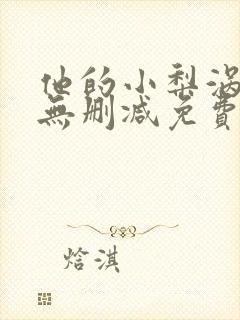 他的小梨涡
無删減免費
焓淇